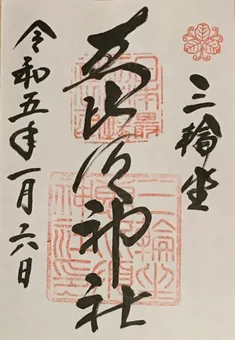 三輪坐
恵比須神社
令和五年一月六日